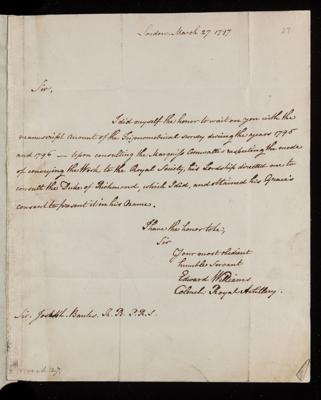 London March 27 1797
27
Sir,
I did myself the honor to wait on you with the
manuscript account of the Trigonometrical survey during the years 1795
and 1796 — Upon consulting the Marquis Cornwallis respecting the mode
of conveying the Work to the Royal Society, his Lordship directed me to
consult the Duke of Richmond, which I did, and obtained his Grace's
consent to present it in his Name.
I have the honor to be,
Sir
Your most obedient
humble Servant
Edward Williams
Colonel Royal Artillery.
Sir Joseph Banks. K. B. P.R.S.